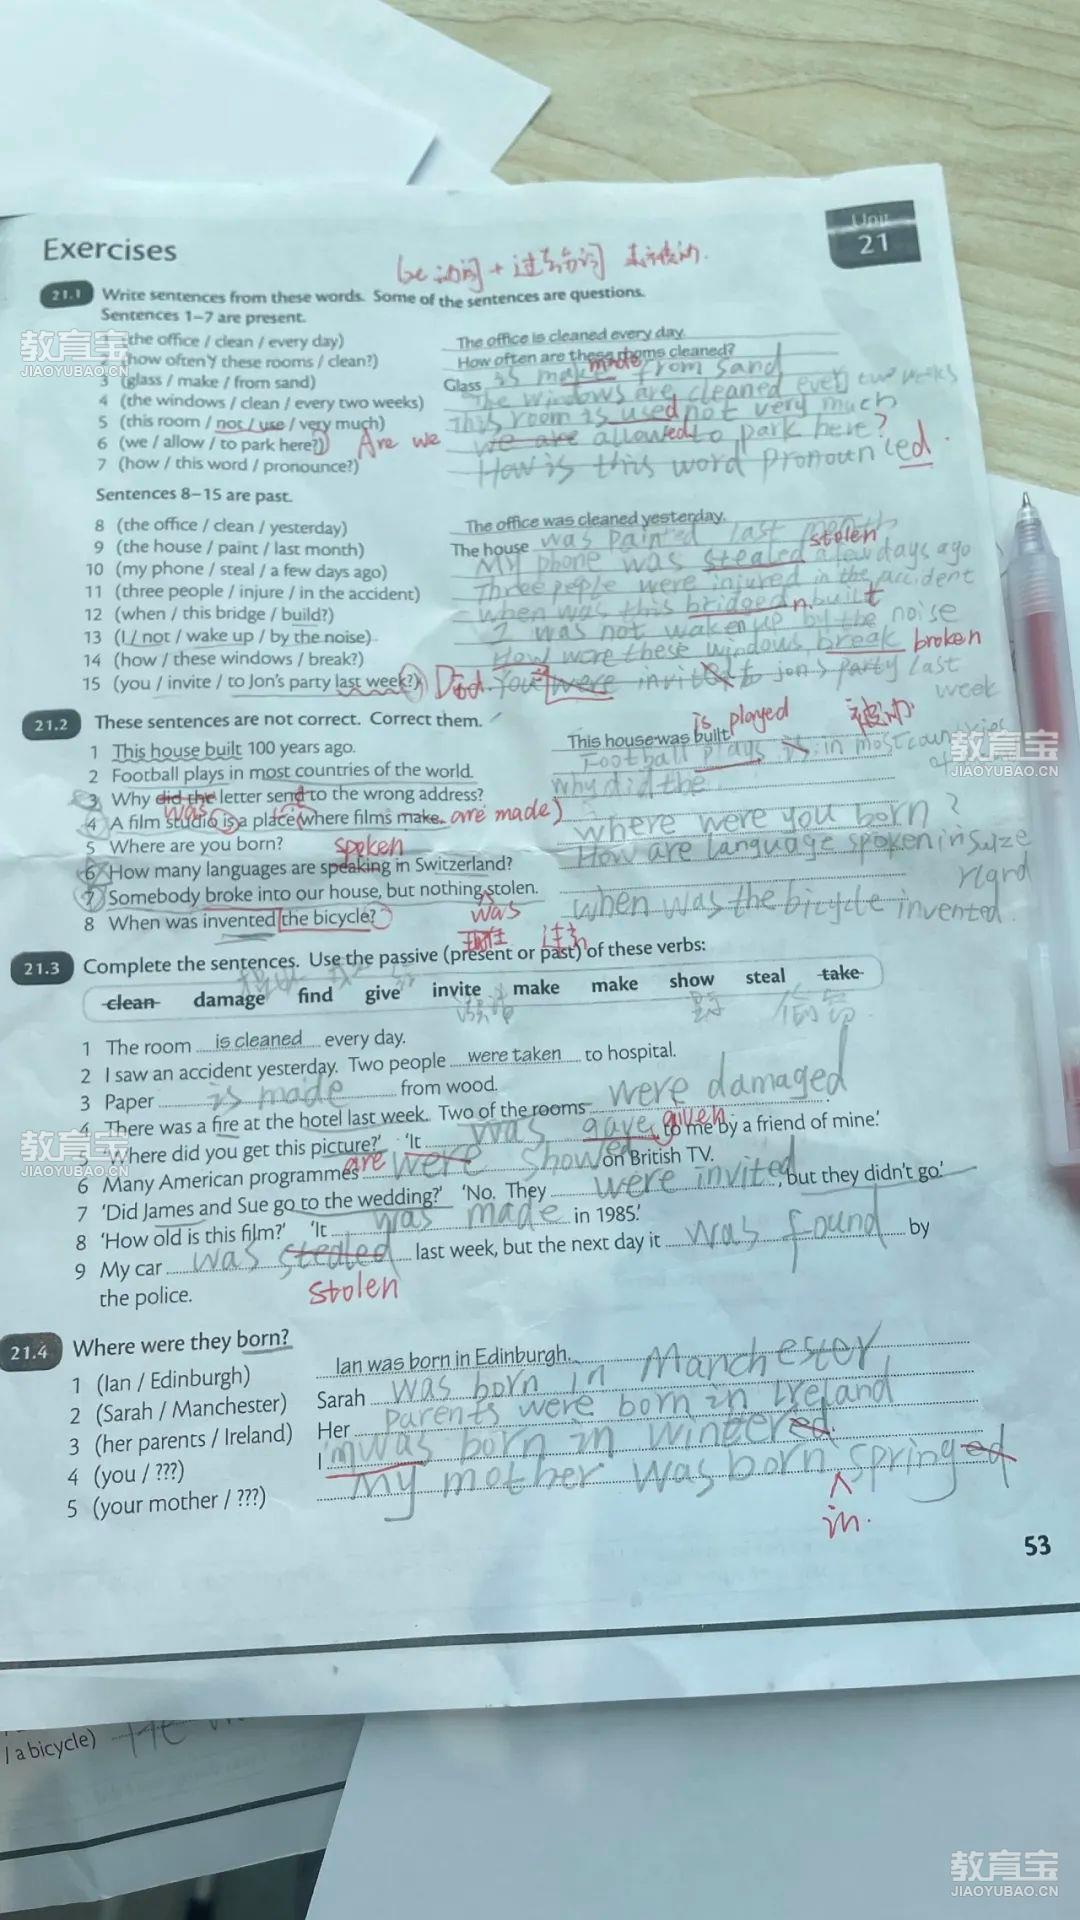 Unit
21
Exercises
be 动词 + 过去分词 表被动.
21.1 Write sentences from these words. Some of the sentences are questions.
Sentences 1–7 are present.
教育宝
JIAOYUBAO.CN
(the office / clean / every day) The office is cleaned every day.
(how often / these rooms / clean?) How often are these rooms cleaned?
3 (glass / make / from sand) Glass is make made from sand
4 (the windows / clean / every two weeks) The windows are cleaned every two weeks
5 (this room / not / use / very much) This room is used not very much
6 (we / allow / to park here?) Are we we are allowed to park here?
7 (how / this word / pronounce?) How is this word pronounced.
Sentences 8–15 are past.
8 (the office / clean / yesterday) The office was cleaned yesterday.
9 (the house / paint / last month) The house was painted last month
10 (my phone / steal / a few days ago) My phone was stealed stolen a few days ago
11 (three people / injure / in the accident) Three peple were injured in the accident
12 (when / this bridge / build?) when was this bridged built
13 (I / not / wake up / by the noise) I was not waken up by the noise
14 (how / these windows / break?) How were these windows break broken
15 (you / invite / to Jon's party last week?) Did. You were invited to jon's party last week
21.2 These sentences are not correct. Correct them.
is played 被动
1 This house built 100 years ago. This house was built
2 Football plays in most countries of the world. Football plays in most countries
教育宝
JIAOYUBAO.CN
3 Why did the letter send to the wrong address? Why did the
was
4 A film studio is a place (where films make. are made)
5 Where are you born? where were you born?
spoken
6 How many languages are speaking in Switzerland? How are language spoken in Swize rlgnd
7 Somebody broke into our house, but nothing stolen.
was
8 When was invented the bicycle? when was the bicycle invented.
现在 过去
21.3 Complete the sentences. Use the passive (present or past) of these verbs:
clean damage find give invite make make show steal take
1 The room is cleaned every day.
2 I saw an accident yesterday. Two people were taken to hospital.
3 Paper is made from wood.
4 There was a fire at the hotel last week. Two of the rooms were damaged.
教育宝
JIAOYUBAO.CN
5 'Where did you get this picture?' 'It was gave given to me by a friend of mine.'
6 Many American programmes are were showed on British TV.
7 'Did James and Sue go to the wedding?' 'No. They were invited, but they didn't go.'
8 'How old is this film?' 'It was made in 1985.'
9 My car was stealed last week, but the next day it was found by
the police. stolen
21.4 Where were they born?
1 (Ian / Edinburgh) Ian was born in Edinburgh.
2 (Sarah / Manchester) Sarah was born in Manchester
3 (her parents / Ireland) Her parents were born in Ireland
4 (you / ???) I 'm was born in wintered.
5 (your mother / ???) My mother was born springed
in.
53
/ a bicycle) He
教育宝
JIAOYUBAO.CN